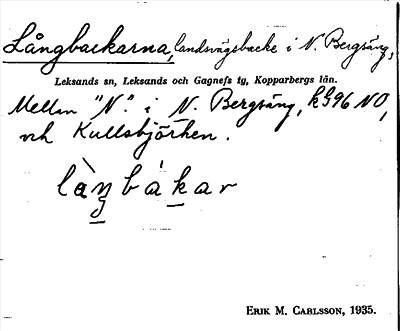 Långbackarna, landsvägsbacke i N. Bergsäng,
Leksands sn, Leksands och Gagnefs tg, Kopparbergs län.
Mellan "N." i N. Bergsäng, kS96 NO,
och Kullsbjörken.
là̱ŋbákar
ERIK M. CARLSSON, 1935.